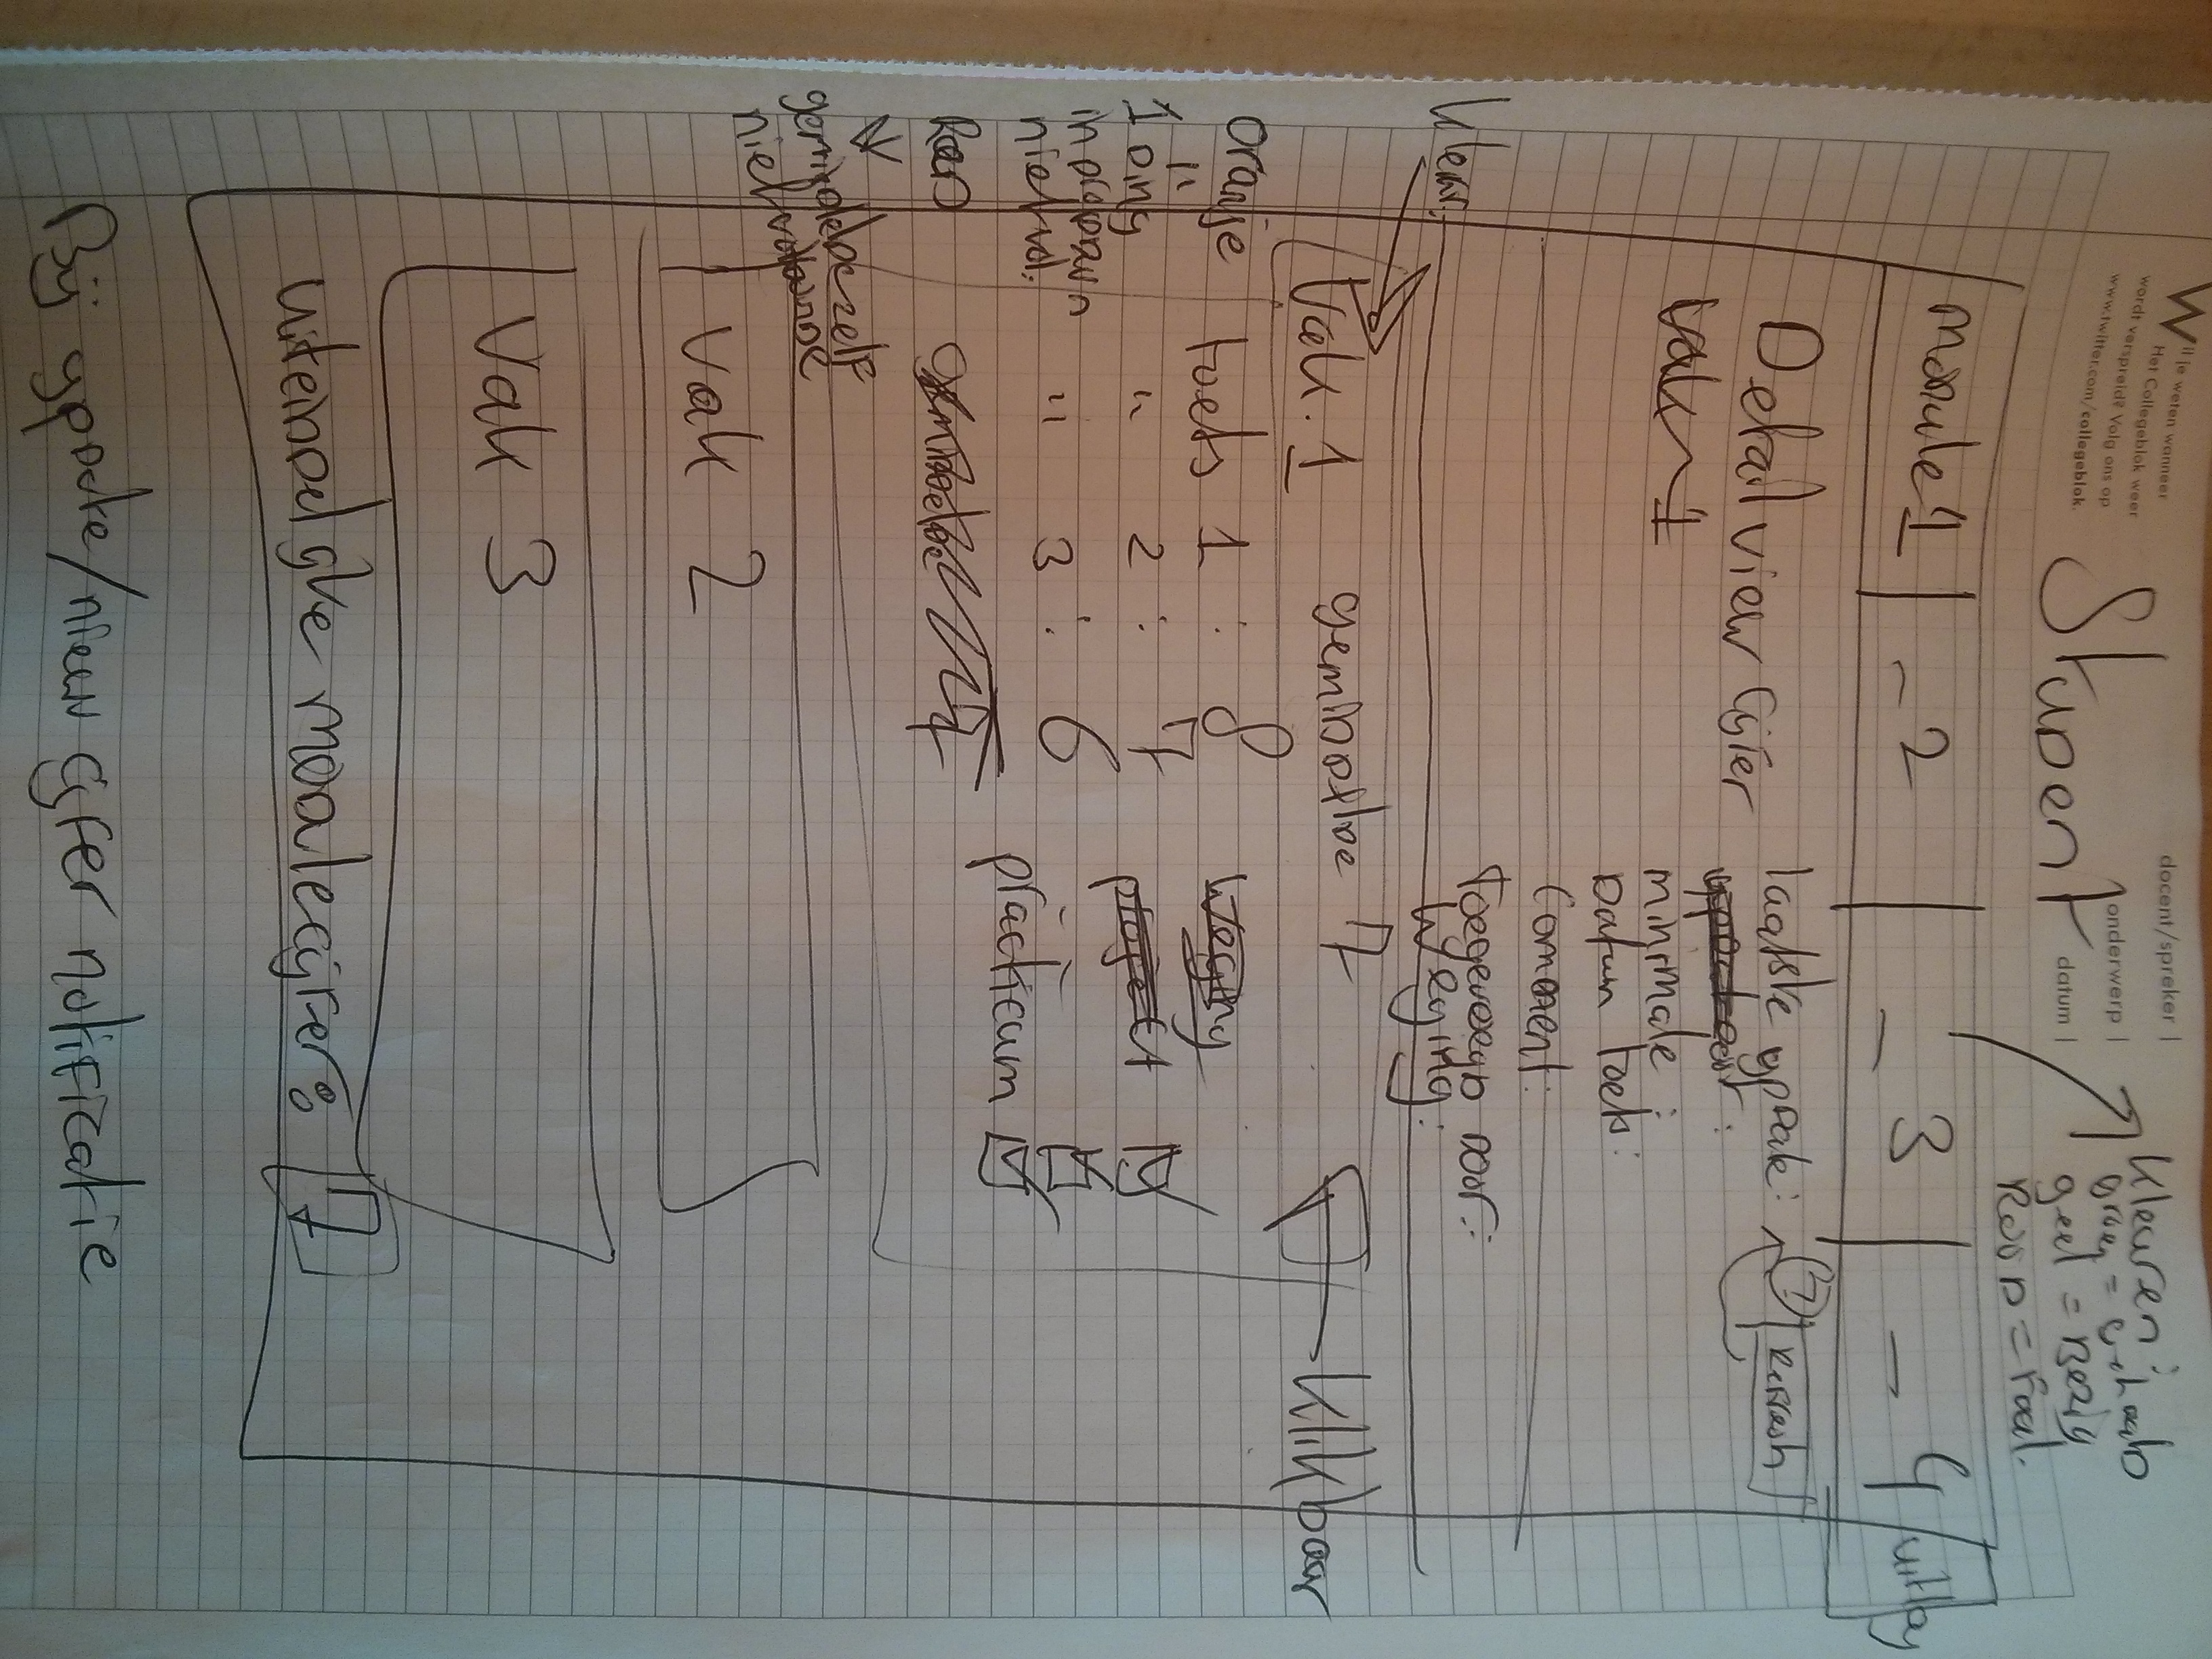 Wil je weten wanneer
Het Collegeblok weer
wordt verspreid? Volg ons op
www.twitter.com/collegeblok.
docent/spreker |
onderwerp |
datum |
Student
Kleuren:
groen = gehaald
geel = Bezig
Rood = Faal.
module 1 | - 2 | - 3 | - 4 / uitlog
Detail view Cijfer
laatste update: 7 refresh
Vak 1
minimale :
Datum toets :
Comment :
Toegevoegd door :
Weging :
Kleur:
Vak. 1 gemiddelde 7
Klikbaar
Oranje
"
1 Ding
in dropdown
niet vold.
toets 1 : 8
" 2 : 7
" 3 : 6
practicum
Rood
gemiddelde zelf
niet voldoende
Vak 2
Vak 3
Uiteindelijke modulecijfer: 7
Bij update/nieuw cijfer notificatie